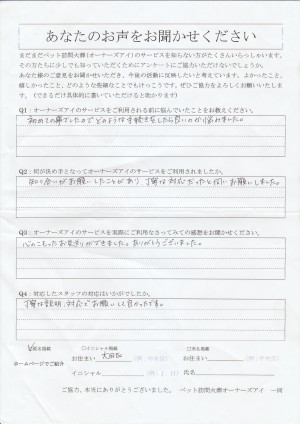 あなたのお声をお聞かせください
まだまだペット訪問火葬(オーナーズアイ)のサービスを知らない方がたくさんいらっしゃいます。
その方たちに少しでも知っていただくためにアンケートにご協力いただけないでしょうか。
あなた様のご意見をお聞かせいただき、今後の活動に反映したいと考えています。よかったこと、
嬉しかったこと、どのような些細なことでもけっこうです。ぜひご協力をよろしくお願いいたします。
(できるだけ具体的に書いていただけると助かります)
Q1：オーナーズアイのサービスをご利用される前に悩んでいたことをお教えください。
初めての事でしたのでどのような手続きをしたら良いのか悩みました。
Q2：何が決め手となってオーナーズアイのサービスを利用されましたか。
知り合いがお願いしたことがあり、丁寧な対応だったと伺いお願いしました。
Q3：オーナーズアイのサービスを実際にご利用なさってみての感想をお聞かせください。
心のこもったお見送りができました。ありがとうございました。
Q4：対応したスタッフの対応はいかがでしたか。
丁寧な説明、対応でお願いして良かったです。
匿名掲載 □イニシャル掲載 □実名掲載
お住まい 大田区 お住まい
ホームページでご紹介
イニシャル 氏名
ご協力、本当にありがとうございました。 ペット訪問火葬オーナーズアイ 一同